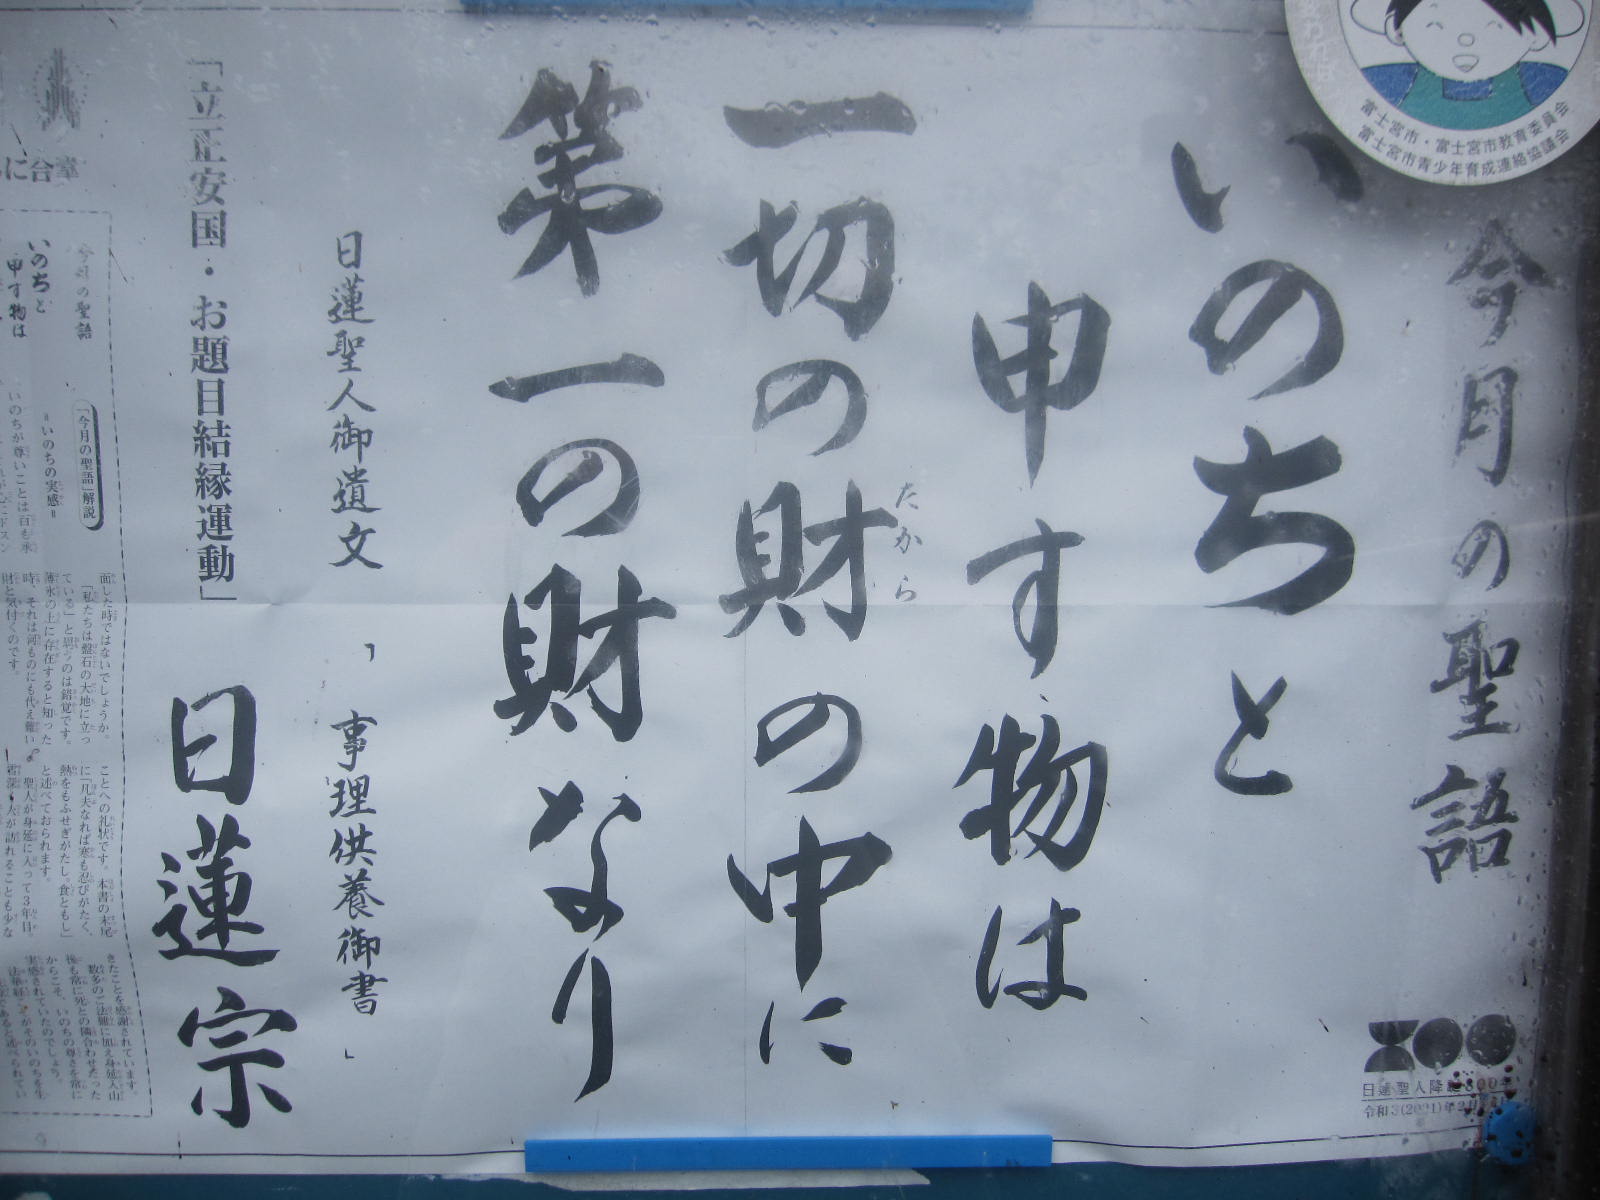 富士宮市・富士宮市教育委員会
富士宮市青少年育成連絡協議会
今月の聖語
いのちと
申す物は
一切の財の中に
たから
第一の財なり
日蓮聖人御遺文
「事理供養御書」
「立正安国・お題目結縁運動」
日蓮宗
800
今月の聖語
いのちと
申す物は
「今月の聖語」解説
＝いのちの実感＝
いのちが尊いことは
面した時ではないでしょうか。
「私たちは盤石の大地に立っ
ている」と思うのは錯覚です。
薄氷の上に存在すると知った
時、それは何ものにも代え難い
財と気付くのです。
ことへの礼状です。本書の末尾
に「凡夫なれば寒も忍びがたく、
熱をもふせぎがたし。食ともし」
と述べておられます。
聖人が身延に入って3年目。
きたことを感謝されています。
数多のご法難に加え身延入山
後も常に死との隣合わせだった
からこそ、いのちの尊さを常に
実感されていたのでしょう。